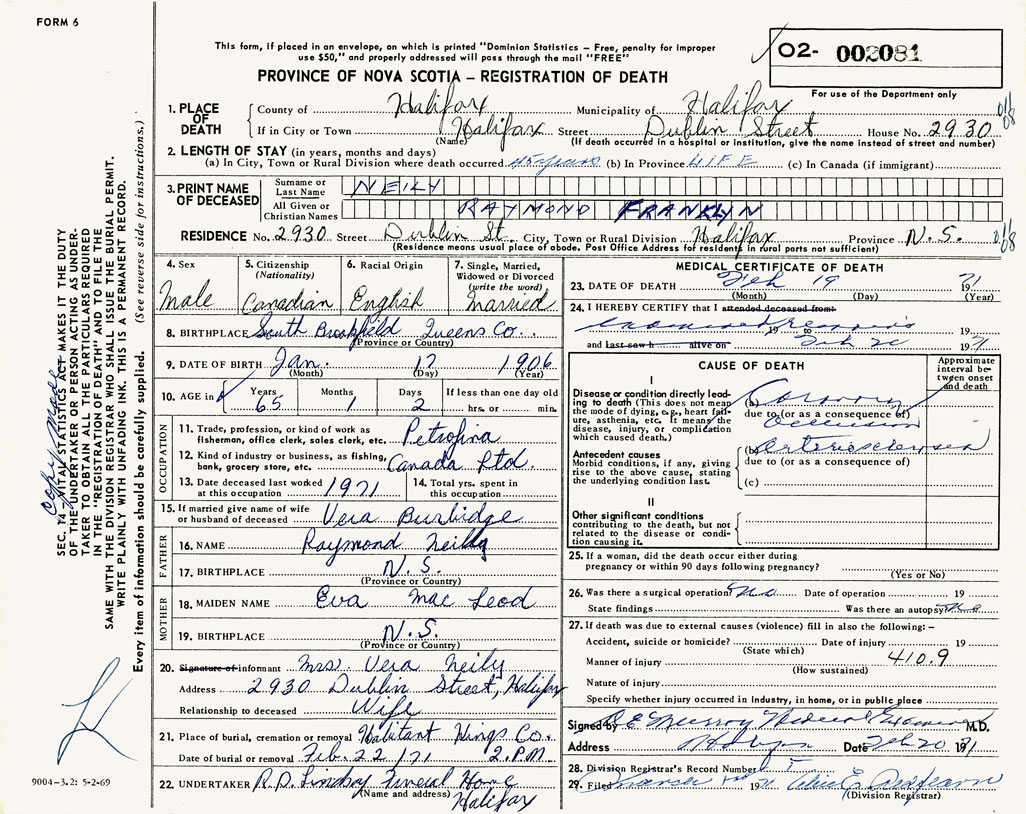 FORM 6
This form, if placed in an envelope, on which is printed "Dominion Statistics – Free, penalty for improper
use $50," and properly addressed will pass through the mail "FREE"
O2- 002081
PROVINCE OF NOVA SCOTIA – REGISTRATION OF DEATH
For use of the Department only
1. PLACE OF DEATH
County of Halifax Municipality of Halifax
If in City or Town Halifax Street Dublin Street House No. 2930
(Name) (If death occurred in a hospital or institution, give the name instead of street and number)
2. LENGTH OF STAY (in years, months and days)
(a) In City, Town or Rural Division where death occurred 45 years (b) In Province LIFE (c) In Canada (if immigrant)
3. PRINT NAME OF DECEASED
Surname or Last Name NEILY
All Given or Christian Names RAYMOND FRANKLYN
RESIDENCE No. 2930 Street Dublin St. City, Town or Rural Division Halifax Province N.S.
(Residence means usual place of abode. Post Office Address for residents in rural parts not sufficient)
4. Sex
Male
5. Citizenship
(Nationality)
Canadian
6. Racial Origin
English
7. Single, Married,
Widowed or Divorced
(write the word)
Married
8. BIRTHPLACE South Brookfield Queens Co.
(Province or Country)
9. DATE OF BIRTH Jan. 17 1906
(Month) (Day) (Year)
10. AGE in
Years Months Days If less than one day old
65 1 2 hrs. or min.
OCCUPATION
11. Trade, profession, or kind of work as
fisherman, office clerk, sales clerk, etc. Petrofina
12. Kind of industry or business, as fishing,
bank, grocery store, etc. Canada Ltd.
13. Date deceased last worked
at this occupation 1971
14. Total yrs. spent in
this occupation
15. If married give name of wife
or husband of deceased Vera Burbidge
FATHER
16. NAME Raymond Neily
17. BIRTHPLACE N.S.
(Province or Country)
MOTHER
18. MAIDEN NAME Eva Mac Leod
19. BIRTHPLACE N.S.
(Province or Country)
20. Signature of informant Mrs. Vera Neily
Address 2930 Dublin Street, Halifax
Relationship to deceased Wife
21. Place of burial, cremation or removal Habitant Kings Co.
Date of burial or removal Feb. 22/71 2.P.M.
22. UNDERTAKER R.D. Lindsay Funeral Home
(Name and address) Halifax
MEDICAL CERTIFICATE OF DEATH
23. DATE OF DEATH Feb 19 1971
(Month) (Day) (Year)
24. I HEREBY CERTIFY that I attended deceased from
examined remains 19 to 19
and last saw h alive on Feb 20 1971
CAUSE OF DEATH
Approximate
interval be-
tween onset
and death
I
Disease or condition directly lead-
ing to death (This does not mean
the mode of dying, e.g., heart fail-
ure, asthenia, etc. It means the
disease, injury, or complication
which caused death.)
(a) Coronary
due to (or as a consequence of)
Occlusion
Antecedent causes
Morbid conditions, if any, giving
rise to the above cause, stating
the underlying condition last.
(b) Arteriosclerosis
due to (or as a consequence of)
(c)
II
Other significant conditions
contributing to the death, but not
related to the disease or condi-
tion causing it.
25. If a woman, did the death occur either during
pregnancy or within 90 days following pregnancy?
(Yes or No)
26. Was there a surgical operation? No Date of operation 19
State findings Was there an autopsy? No
27. If death was due to external causes (violence) fill in also the following: –
Accident, suicide or homicide? Date of injury 19
(State which)
Manner of injury 410.9
(How sustained)
Nature of injury
Specify whether injury occurred in Industry, in home, or in public place
Signed by Murray Medical Examiner M.D.
Address Date Feb 20 1971
28. Division Registrar's Record Number
29. Filed 1971
(Division Registrar)
copy made
SEC. 14 – VITAL STATISTICS ACT MAKES IT THE DUTY
OF THE UNDERTAKER OR PERSON ACTING AS UNDER-
TAKER TO OBTAIN ALL THE PARTICULARS REQUIRED
IN THE "REGISTRATION OF DEATH" AND TO FILE THE
SAME WITH THE DIVISION REGISTRAR WHO SHALL ISSUE THE BURIAL PERMIT.
WRITE PLAINLY WITH UNFADING INK. THIS IS A PERMANENT RECORD.
Every item of information should be carefully supplied. (See reverse side for instructions.)
9004–3.2: 5-2-69